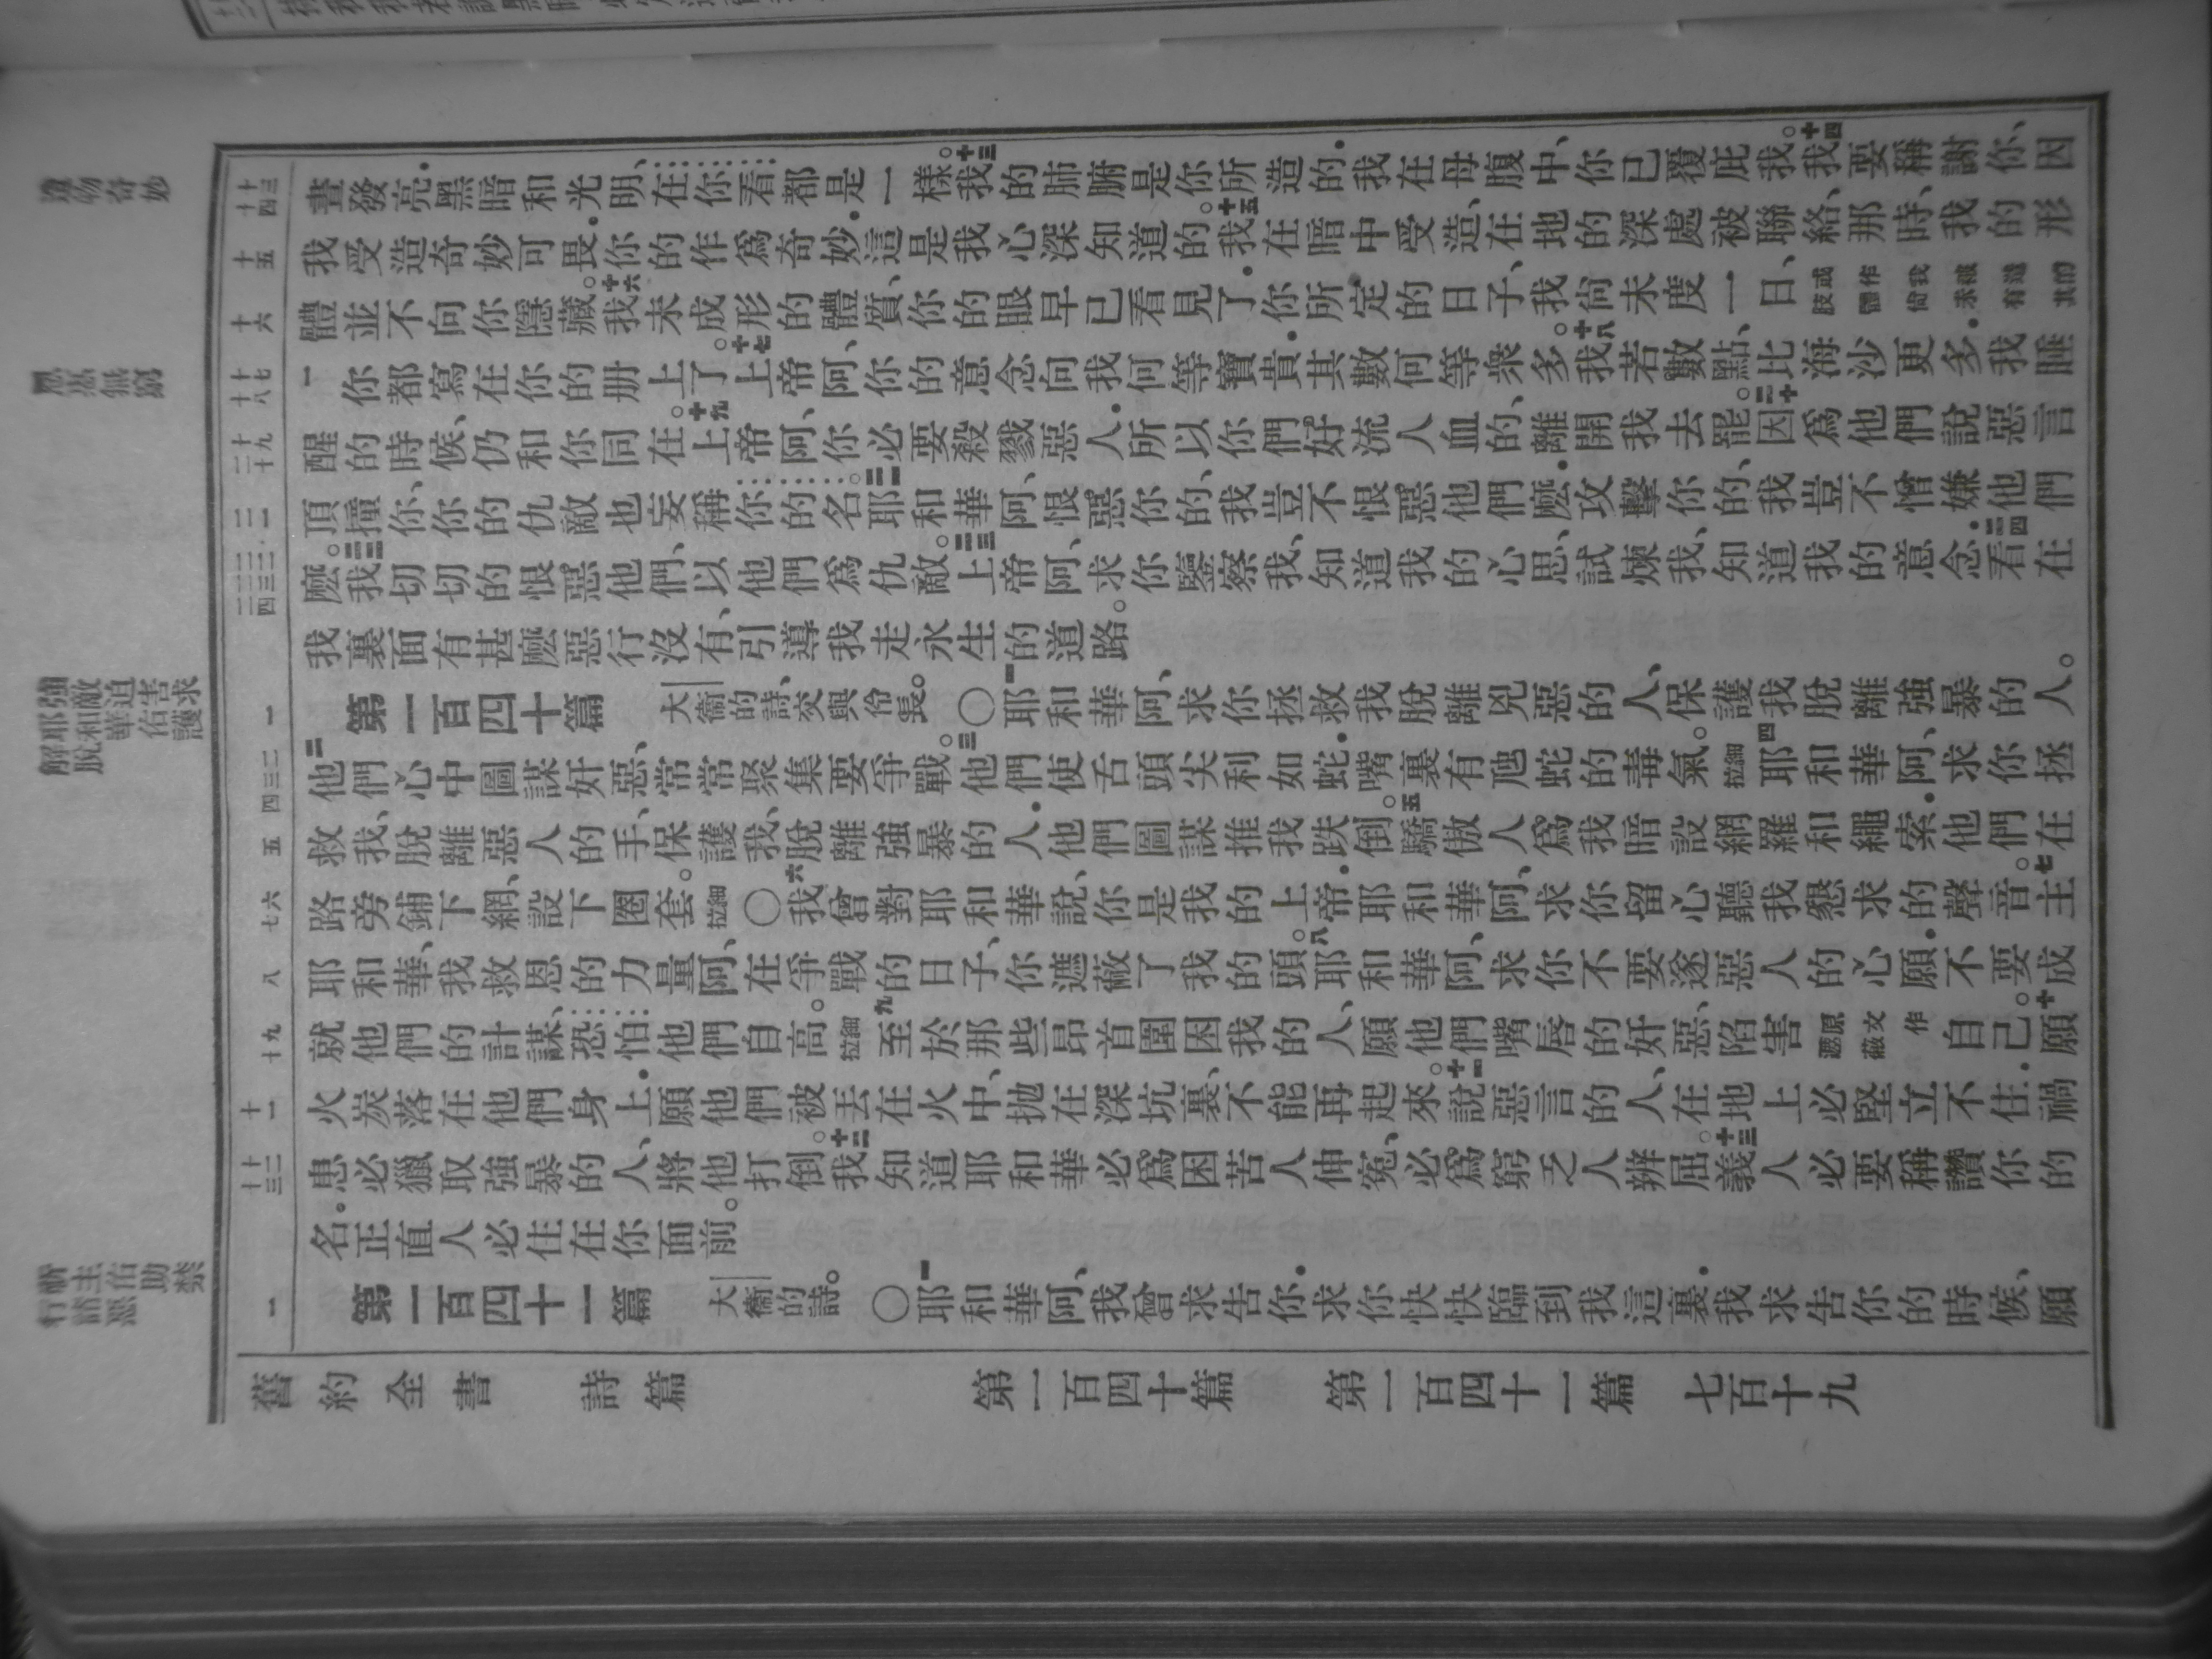 晝發亮．黑暗和光明、在你看都是一樣。十三我的肺腑是你所造的．我在母腹中、你已覆庇我。十四我要稱謝你、因
我受造奇妙可畏．你的作爲奇妙．這是我心深知道的。十五我在暗中受造、在地的深處被聯絡、那時、我的形
體並不向你隱藏。十六我未成形的體質、你的眼早已看見了．你所定的日子、我尚未度一日、或作我被造的肢體尙未有其
一你都寫在你的册上了。十七上帝阿、你的意念向我何等寶貴．其數何等衆多。十八我若數點、比海沙更多．我睡
醒的時候、仍和你同在。十九上帝阿、你必要殺戮惡人．所以你們好流人血的、離開我去罷。二十因爲他們說惡言
頂撞你、你的仇敵也妄稱你的名。二一耶和華阿、恨惡你的、我豈不恨惡他們麽．攻擊你的、我豈不憎嫌他們
麽。二二我切切的恨惡他們、以他們爲仇敵。二三上帝阿、求你鑒察我、知道我的心思、試煉我、知道我的意念．二四看在
我裏面有甚麽惡行沒有、引導我走永生的道路。
一 第一百四十篇 大衞的詩、交與伶長。〇一耶和華阿、求你拯救我脫離兇惡的人、保護我脫離強暴的人。
二他們心中圖謀奸惡、常常聚集要爭戰。三他們使舌頭尖利如蛇．嘴裏有虺蛇的毒氣。細拉四耶和華阿、求你拯
救我、脫離惡人的手、保護我、脫離強暴的人．他們圖謀推我跌倒。五驕傲人爲我暗設網羅和繩索．他們在
路旁鋪下網、設下圈套。細拉〇六我曾對耶和華說、你是我的上帝．耶和華阿、求你留心聽我懇求的聲音。七主
耶和華、我救恩的力量阿、在爭戰的日子、你遮蔽了我的頭。八耶和華阿、求你不要遂惡人的心願．不要成
就他們的計謀、恐怕他們自高。細拉九至於那些昂首圍困我的人、願他們嘴唇的奸惡、陷害原文作遮蔽自己。十願
火炭落在他們身上．願他們被丟在火中、抛在深坑裏、不能再起來。十一說惡言的人、在地上必堅立不住．禍
患必獵取強暴的人、將他打倒。十二我知道耶和華必爲困苦人伸冤、必爲窮乏人辨屈。十三義人必要稱讚你的
名．正直人必住在你面前。
一 第一百四十一篇 大衞的詩。〇一耶和華阿、我曾求告你．求你快快臨到我這裏．我求告你的時候、願
舊約全書 詩篇 第一百四十篇 第一百四十一篇 七百十九